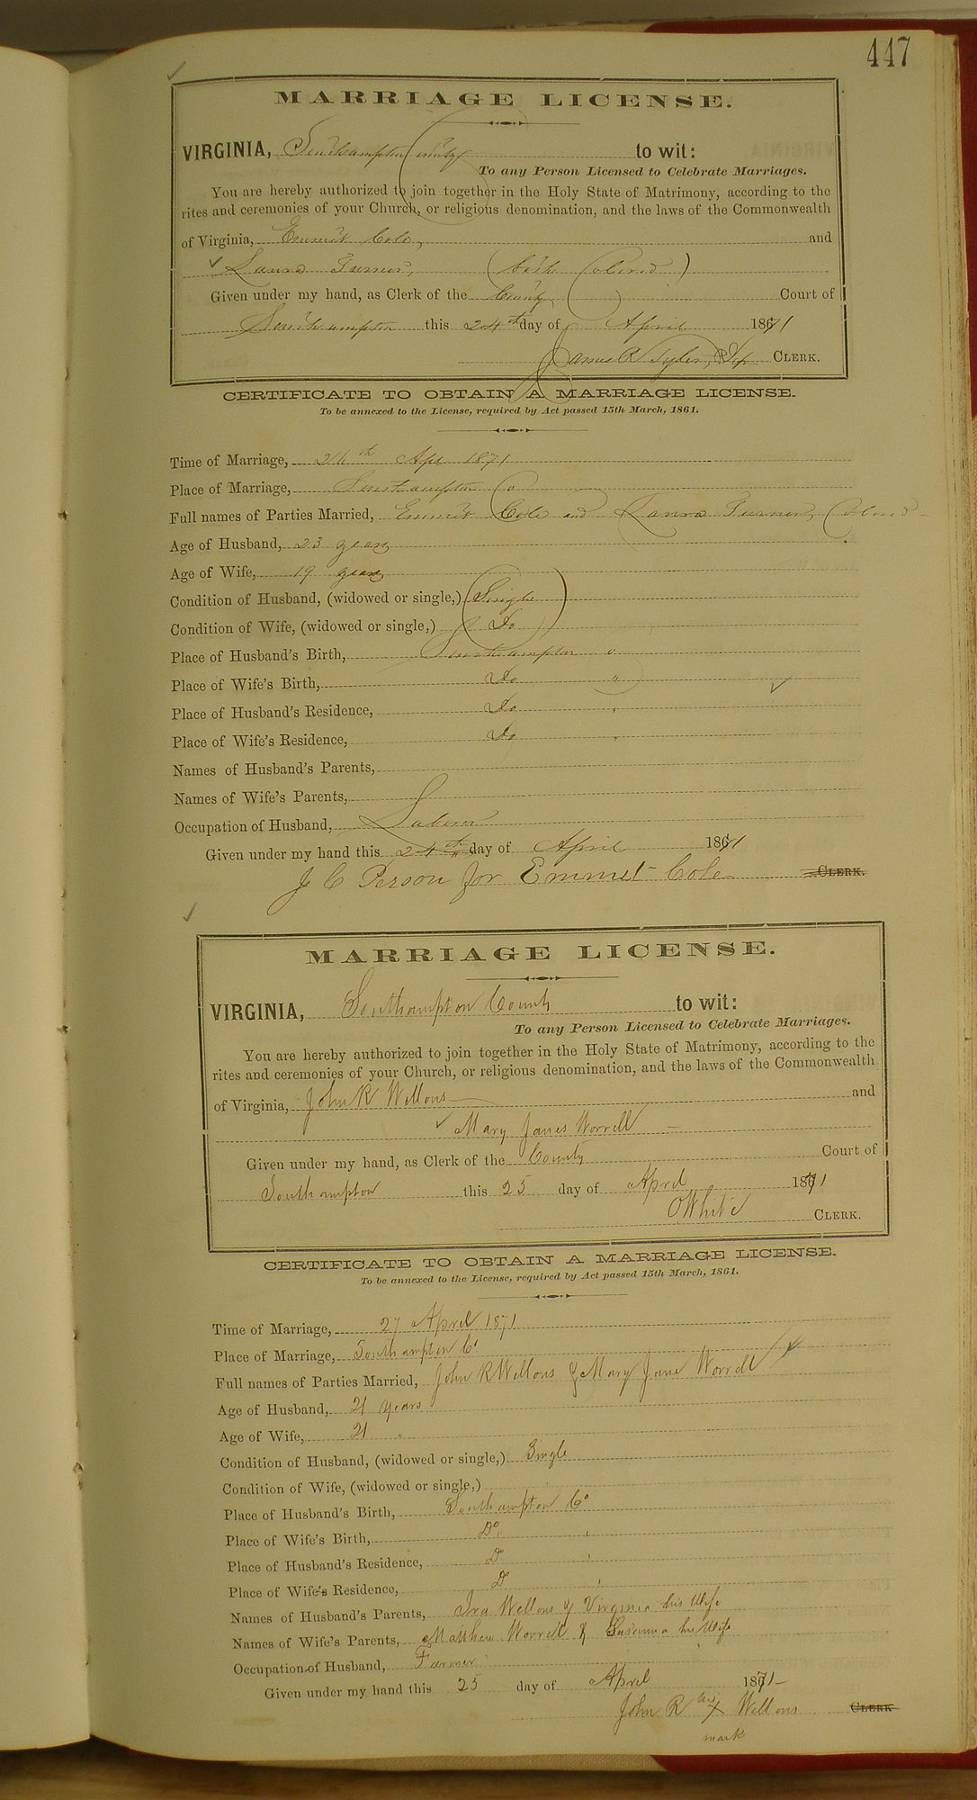 447
MARRIAGE LICENSE.
VIRGINIA, Southampton County to wit:
To any Person Licensed to Celebrate Marriages.
You are hereby authorized to join together in the Holy State of Matrimony, according to the
rites and ceremonies of your Church, or religious denomination, and the laws of the Commonwealth
of Virginia, Emmet Cole, and
Laura Turner, (both Colored)
Given under my hand, as Clerk of the County Court of
Southampton this 24th day of April 1871
James R Tyler, Dep CLERK.
CERTIFICATE TO OBTAIN A MARRIAGE LICENSE.
To be annexed to the License, required by Act passed 15th March, 1861.
Time of Marriage, 26th Apl 1871
Place of Marriage, Southampton Co
Full names of Parties Married, Emmet Cole and Laura Turner, Colored
Age of Husband, 23 years
Age of Wife, 19 years
Condition of Husband, (widowed or single,) Single
Condition of Wife, (widowed or single,) Do
Place of Husband's Birth, Southampton Co
Place of Wife's Birth, Do "
Place of Husband's Residence, Do "
Place of Wife's Residence, Do "
Names of Husband's Parents,
Names of Wife's Parents,
Occupation of Husband, Laborer
Given under my hand this 24th day of April 1871
J C Person for Emmet Cole CLERK.
MARRIAGE LICENSE.
VIRGINIA, Southampton County to wit:
To any Person Licensed to Celebrate Marriages.
You are hereby authorized to join together in the Holy State of Matrimony, according to the
rites and ceremonies of your Church, or religious denomination, and the laws of the Commonwealth
of Virginia, John R Wellons and
Mary Janes Worrell
Given under my hand, as Clerk of the County Court of
Southampton this 25 day of April 1871
O White CLERK.
CERTIFICATE TO OBTAIN A MARRIAGE LICENSE.
To be annexed to the License, required by Act passed 15th March, 1861.
Time of Marriage, 27 April 1871
Place of Marriage, Southampton Co
Full names of Parties Married, John R Wellons & Mary Jane Worrell
Age of Husband, 21 years
Age of Wife, 21 "
Condition of Husband, (widowed or single,) Single
Condition of Wife, (widowed or single,)
Place of Husband's Birth, Southampton Co
Place of Wife's Birth, Do "
Place of Husband's Residence, D "
Place of Wife's Residence, D "
Names of Husband's Parents, Ira Wellons & Virginia his Wife
Names of Wife's Parents, Matthew Worrell & Susanna his Wife
Occupation of Husband, Farmer
Given under my hand this 25 day of April 1871
John R his X Wellons CLERK
mark